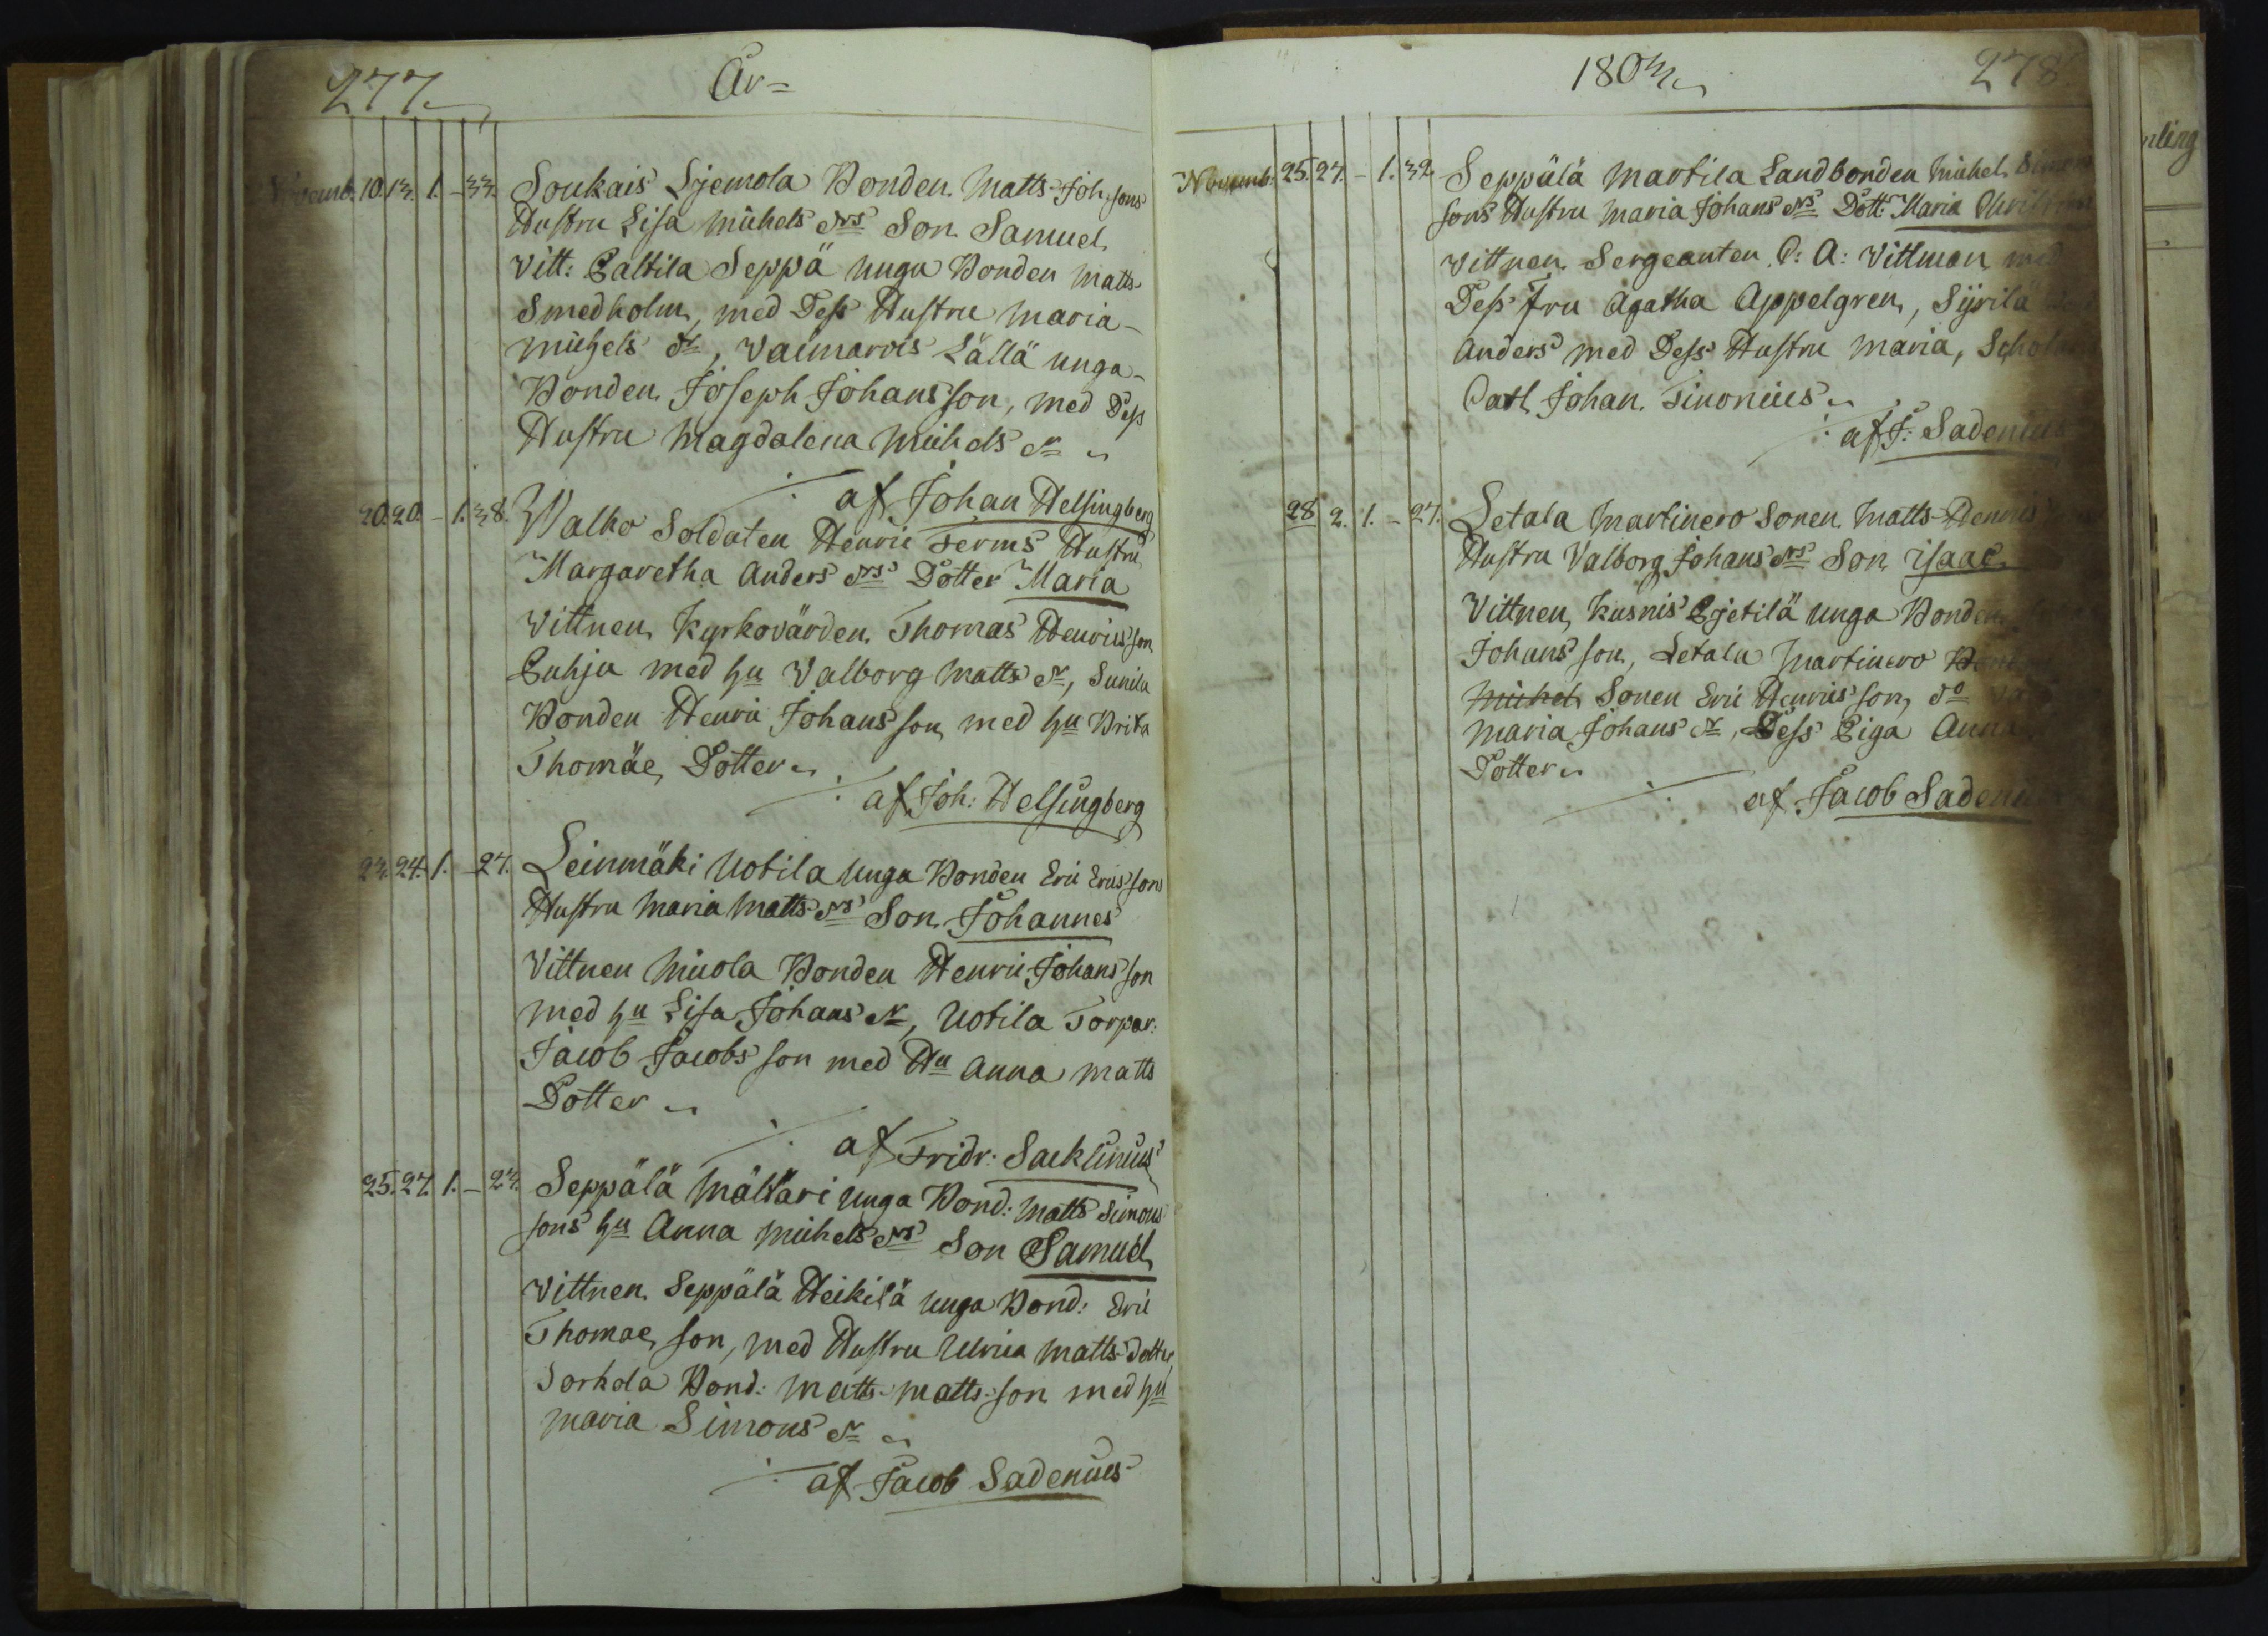 277.
År=
Novemb. 10. 13. 1. - 33. Soukais Sjemola Bonden Matts Joh. sons
Hustru Lisa Michels drs Son Samuel
Vitt: Paltila Seppä unga Bonden Matts
Smedholm, med Dess Hustru Maria
Michels dr, Valmarois Lällä unga
Bonden Joseph Johans son, med Dess
Hustru Magdalena Michels dr
af Johan Helsingberg
20. 20. - 1. 38. Walko Soldaten Henric Ferms Hustru
Margaretha Anders drs Dotter Maria
Vittnen Kyrkovärden Thomas Henrics son
Puhju med hu Valborg Matts dr, Sunila
Bonden Henric Johans son med hu Brita
Thomäe Dotter
af Joh: Helsingberg
23. 24. 1. - 27. Leinmäki Uotila unga Bonden Eric Erics sons
Hustru Maria Matts drs Son Johannes
Vittnen Micola Bonden Henric Johans son
med hu Lisa Johans dr, Uotila Torpar:
Jacob Jacobs son med Hu Anna Matts
Dotter
af Fridr: Sacklinius
25. 27. 1. - 23. Seppälä Mältäri unga Bond: Matts Simons
sons hu Anna Michels drs Son Samuel
Vittnen Seppälä Heikilä unga Bond: Eric
Thomae son, med Hustru Ulrica Matts dotter
Sorkola Bond: Matts Matts son med hu
Maria Simons dr
af Jacob Sadenius
1803
278
Novemb. 25. 27. - 1. 32. Seppälä Martila Landbonden Michel
sons Hustru Maria Johans drs Dott: Maria
Vittnen Sergeanten C: A: Vittman med
Dess Fru Agatha Appelgren, Sÿrilä
Anders med Dess Hustru Maria,
Carl Johan Tinonius
af J: Sadenius
28. 2. 1. - 27. Letala Martinero Sonen Matts Henrics
Hustru Valborg Johans drs Son Isaac
Vittnen Kusnis Pjetilä unga Bonden
Johans son, Letala Martinero
Michel Sonen Eric Henrics son, do
Maria Johans dr, Dess Piga Anna
Dotter
af Jacob Sadenius
nling